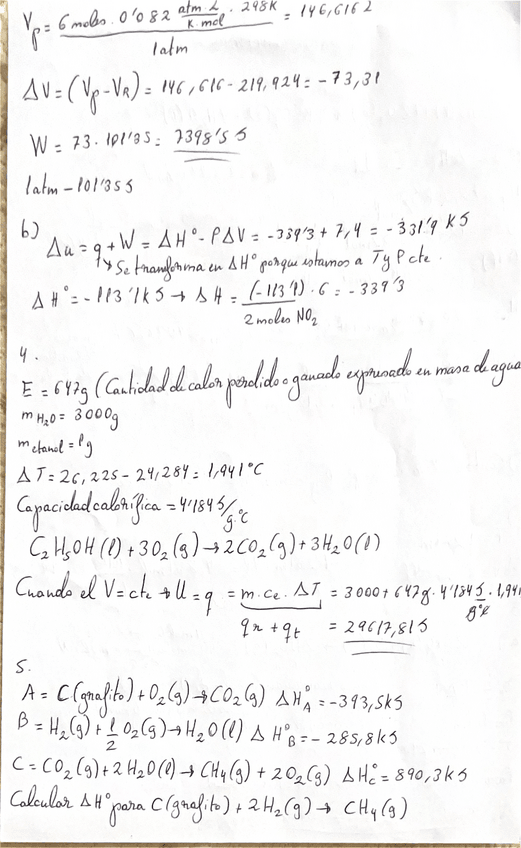 Vp = 6 moles · 0'082 atm·L/K·mol · 298K / 1atm = 146,616 L
ΔV = (Vp - VR) = 146,616 - 219,924 = -73,31
W = 73 · 101'35 = 7398'5 J
1atm - 101'35 J
b) Δu = q + W = ΔH° - PΔV = -339'3 + 7,4 = -331'9 KJ
↳ Se transforma en ΔH° porque estamos a T y P cte.
ΔH° = -113'1KJ → ΔH = (-113'1) · 6 / 2 moles NO2 = -339'3
4.
E = 647g (Cantidad de calor perdido o ganado expresado en masa de agua
m H2O = 3000g
m etanol = 1g
ΔT = 26,225 - 24,284 = 1,941°C
Capacidad calorífica = 4'184 J/g·°C
C2H5OH (l) + 3O2 (g) → 2CO2 (g) + 3H2O (l)
Cuando el V = cte → U = q = m·ce·ΔT = 3000 + 647g · 4'184 J/g°C · 1,941
qr + qt = 29617,81J
5.
A = C(grafito) + O2(g) → CO2(g) ΔH°A = -393,5KJ
B = H2(g) + 1/2 O2(g) → H2O(l) ΔH°B = -285,8KJ
C = CO2(g) + 2H2O(l) → CH4(g) + 2O2(g) ΔH°C = 890,3KJ
Calcular ΔH° para C(grafito) + 2H2(g) → CH4(g)